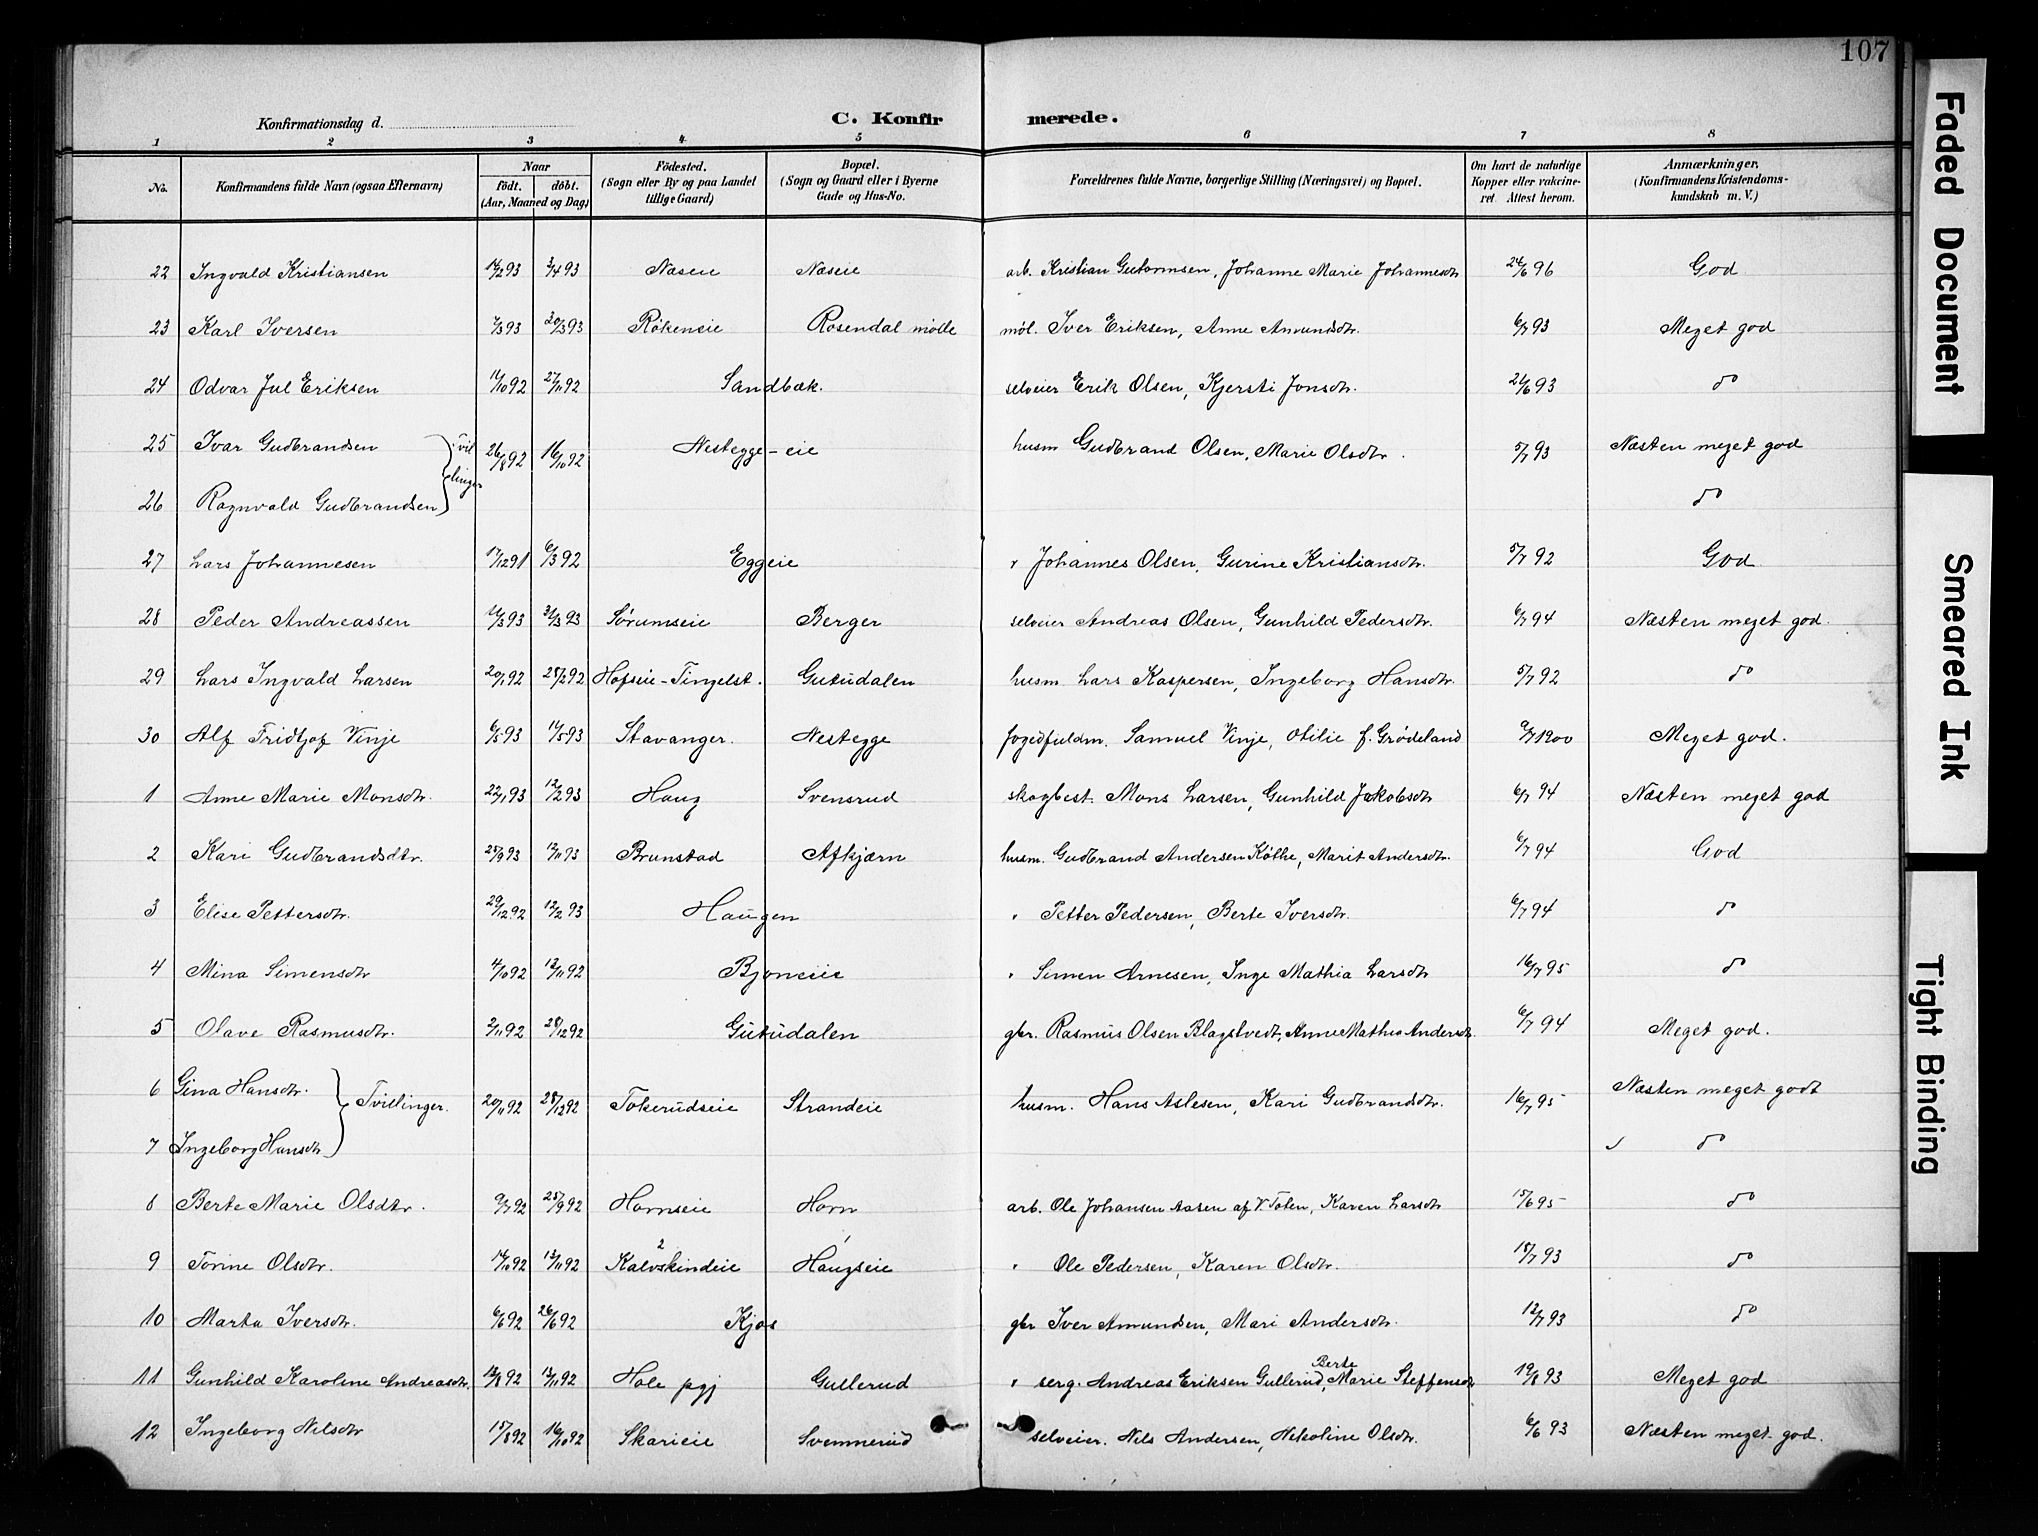 107
Konfirmationsdag d.
C. Konfirmerede.
1 2 3 4 5 6 7 8
No. Konfirmandens fulde Navn (ogsaa Efternavn) Naar födt. döbt. (Aar, Maaned og Dag) Födested. (Sogn eller By og paa Landet tillige Gaard) Bopæl. (Sogn og Gaard eller i Byerne Gade og Hus-No. Forældrenes fulde Navne, borgerlige Stilling (Næringsvei) og Bopæl. Om havt de naturlige Kopper eller vakcineret. Attest herom. Anmærkninger. (Konfirmandens Kristendomskundskab m. V.)
22 Ingvald Kristiansen 14/2 93 3/4 93 Næseie Næseie arb. Kristian Gutormsen, Johanne Marie Johannesdtr 24/6 96 God
23 Karl Iversen 7/3 93 30/3 93 Rökeneie Rosendal mölle möl. Iver Eriksen, Anne Amundsdtr. 6/7 93 Meget god
24 Odvar Jul Eriksen 11/10 92 27/11 92 Sandbæk. selveier Erik Olsen, Kjersti Jonsdtr. 21/6 93 do
25 Ivar Gudbrandsen Tvillinger 26/8 92 16/10 92 Nestegge-eie husm Gudbrand Olsen, Marie Olsdtr. 5/7 93 Næsten meget god
26 Ragnvald Gudbrandsen do
27 Lars Johannesen 17/12 91 6/3 92 Eggeie " Johannes Olsen, Gurine Kristiansdtr. 5/7 92 God
28 Peder Andreassen 11/3 93 31/3 93 Sörumseie Berger selveier Andreas Olsen, Gunhild Pedersdtr. 6/7 94 Næsten meget god.
29 Lars Ingvald Larsen 20/1 92 28/2 92 Hofseie-Tingelst. Gutudalen husm. Lars Kaspersen, Ingeborg Hansdtr. 5/7 92 do
30 Alf Fridtjof Vinje 6/5 93 14/5 93 Stavanger. Nestegge fogedfuldm. Samuel Vinje, Otilie f. Grödeland 9/7 1900 Meget god.
1 Anne Marie Monsdtr. 22/1 93 12/2 93 Haug Svensrud skogbest. Mons Larsen, Gunhild Jakobsdtr 6/7 94 Næsten meget god
2 Kari Gudbrandsdtr. 28/9 93 12/11 93 Brunstad Afkjærn husm. Gudbrand Andersen Köthe, Marit Andersdtr. 6/7 94 God
3 Elise Pettersdtr. 29/12 92 12/2 93 Haugen " Petter Pedersen, Berte Iversdtr. 6/7 94 do
4 Mina Simensdtr 4/10 92 13/11 92 Bjoneie " Simen Arnesen, Inge Mathia Larsdtr 16/7 95 do
5 Olave Rasmusdtr. 2/11 92 28/12 92 Gutudalen gbr. Rasmus Olsen Blagstvedt, Anne Mathea Andersdtr. 6/7 94 Meget god.
6 Gina Hansdtr. Tvillinger. 20/11 92 28/12 92 Tokerudseie Strandeie husm. Hans Aslesen, Kari Gudbrandsdtr. 16/7 95 Næsten meget godt
7 Ingeborg Hansdtr do
8 Berte Marie Olsdtr. 9/7 92 25/9 92 Hornseie Horn arb. Ole Johansen Aasen af V. Toten, Karen Larsdtr 15/6 95 do
9 Torine Olsdtr. 14/10 92 13/11 92 Kalvskindeie Haugseie " Ole Pedersen, Karen Olsdtr. 18/7 93 do
10 Marta Iversdtr. 6/6 92 26/6 92 Kjos gbr Iver Amundsen, Mari Andersdtr. 12/7 93 do
11 Gunhild Karoline Andreasdtr. 13/8 92 13/11 92 Hole pgj Gullerud " serg. Andreas Eriksen Gullerud, Berte Marie Steffensdtr 19/8 93 Meget god
12 Ingeborg Nilsdtr 15/8 92 16/10 92 Skarieie Svennerud selveier. Nils Andersen, Nikoline Olsdtr. 6/6 93 Næsten meget god.
Faded Document
Smeared Ink
Tight Binding